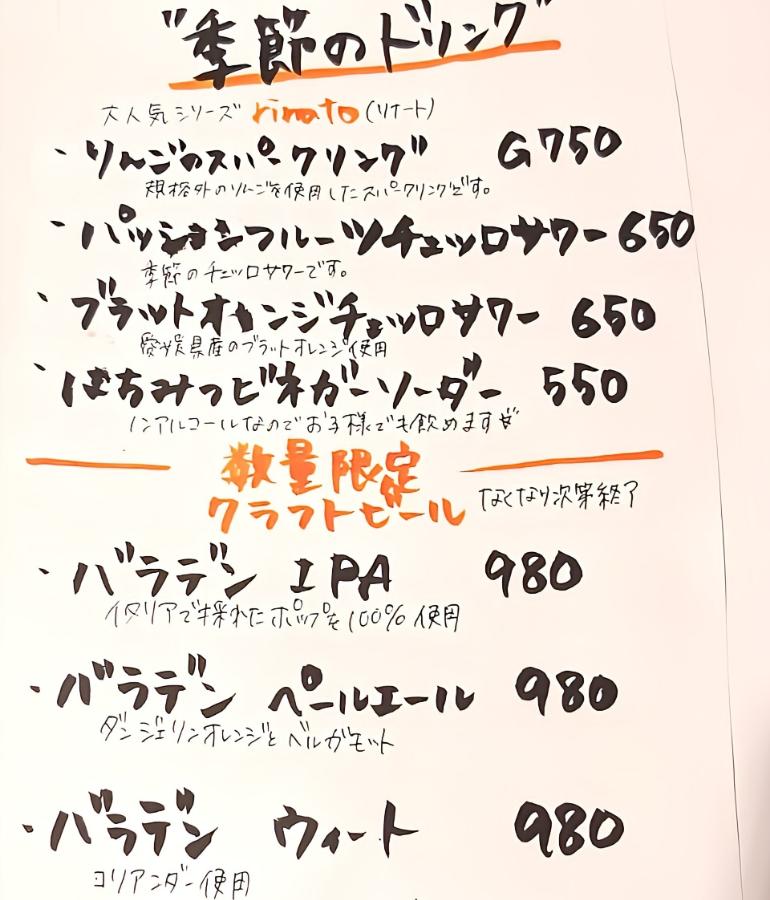 "季節のドリンク"
大人気シリーズ rinato (リナート)
・りんごのスパークリング G750
規格外のリンゴを使用したスパークリングです。
・パッションフルーツチェッロサワー 650
季節のチェッロサワーです。
・ブラットオレンジチェッロサワー 650
愛媛県産のブラットオレンジ使用
・はちみつビネガーソーダー 550
ノンアルコールなのでお子様でも飲めます
数量限定
クラフトビール なくなり次第終了
・バラデン IPA 980
イタリアで採れたホップを100%使用
・バラデン ペールエール 980
ダンジェリンオレンジとベルガモット
・バラデン ウィート 980
コリアンダー使用